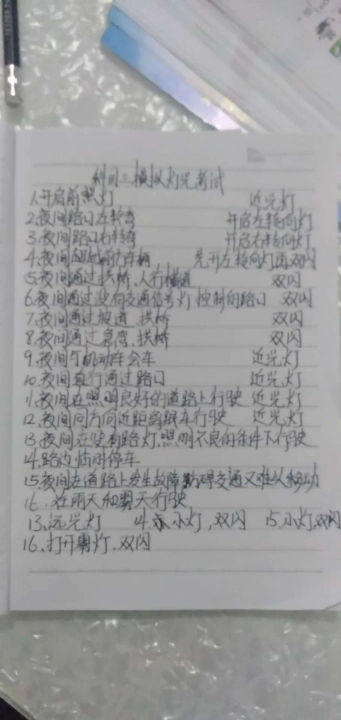 科目三模拟灯光考试
1.开启前照灯 近光灯
2.夜间路口左转弯 开启左转向灯
3.夜间路口右转弯 开启右转向灯
4.夜间超越前方车辆 先开左转向灯再双闪
5.夜间通过拱桥、人行横道 双闪
6.夜间通过没有交通信号灯控制的路口 双闪
7.夜间通过坡道、拱桥 双闪
8.夜间通过急弯、拱桥 双闪
9.夜间与机动车会车 近光灯
10.夜间直行通过路口 近光灯
11.夜间在照明良好的道路上行驶 近光灯
12.夜间同方向近距离跟车行驶 近光灯
13.夜间在没有路灯,照明不良的条件下行驶
14.路边临时停车
15.夜间在道路上发生故障妨碍交通又难以移动
16.在雨天和雾天行驶
13.远光灯 14.小灯,双闪 15.小灯,双闪
16.打开雾灯、双闪